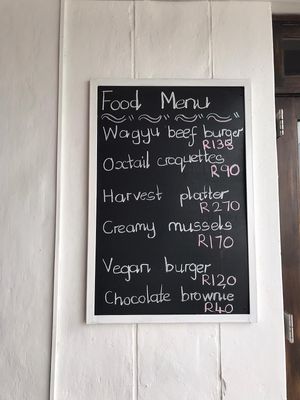 Food Menu
Wagyu beef burger
R138
Oxtail croquettes
R90
Harvest platter
R270
Creamy mussels
R170
Vegan burger
R120
Chocolate brownie
R40